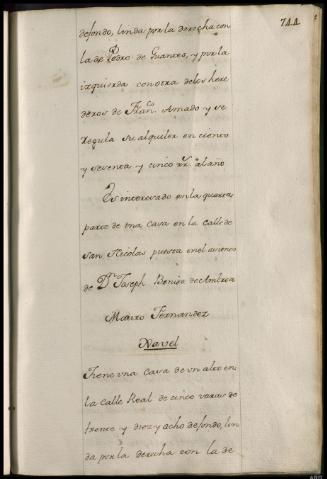 744
defondo, linda por la derecha con
la de Pedro de Guantes, y por la
izquierda con otra de los here
deros de Fran.co Amado y se
regula su alquiler en ciento
y setenta y cinco rr.s al año
Es interesado en la quarta
parte de una casa en la calle de
san Nicolas puesta en el asiento
de D.n Joseph Benito de
Mauro Fernandez
Navel
Tiene una casa de un alto en
la calle Real de cinco varas de
frente y diez y ocho defondo, lin
da por la derecha con la de